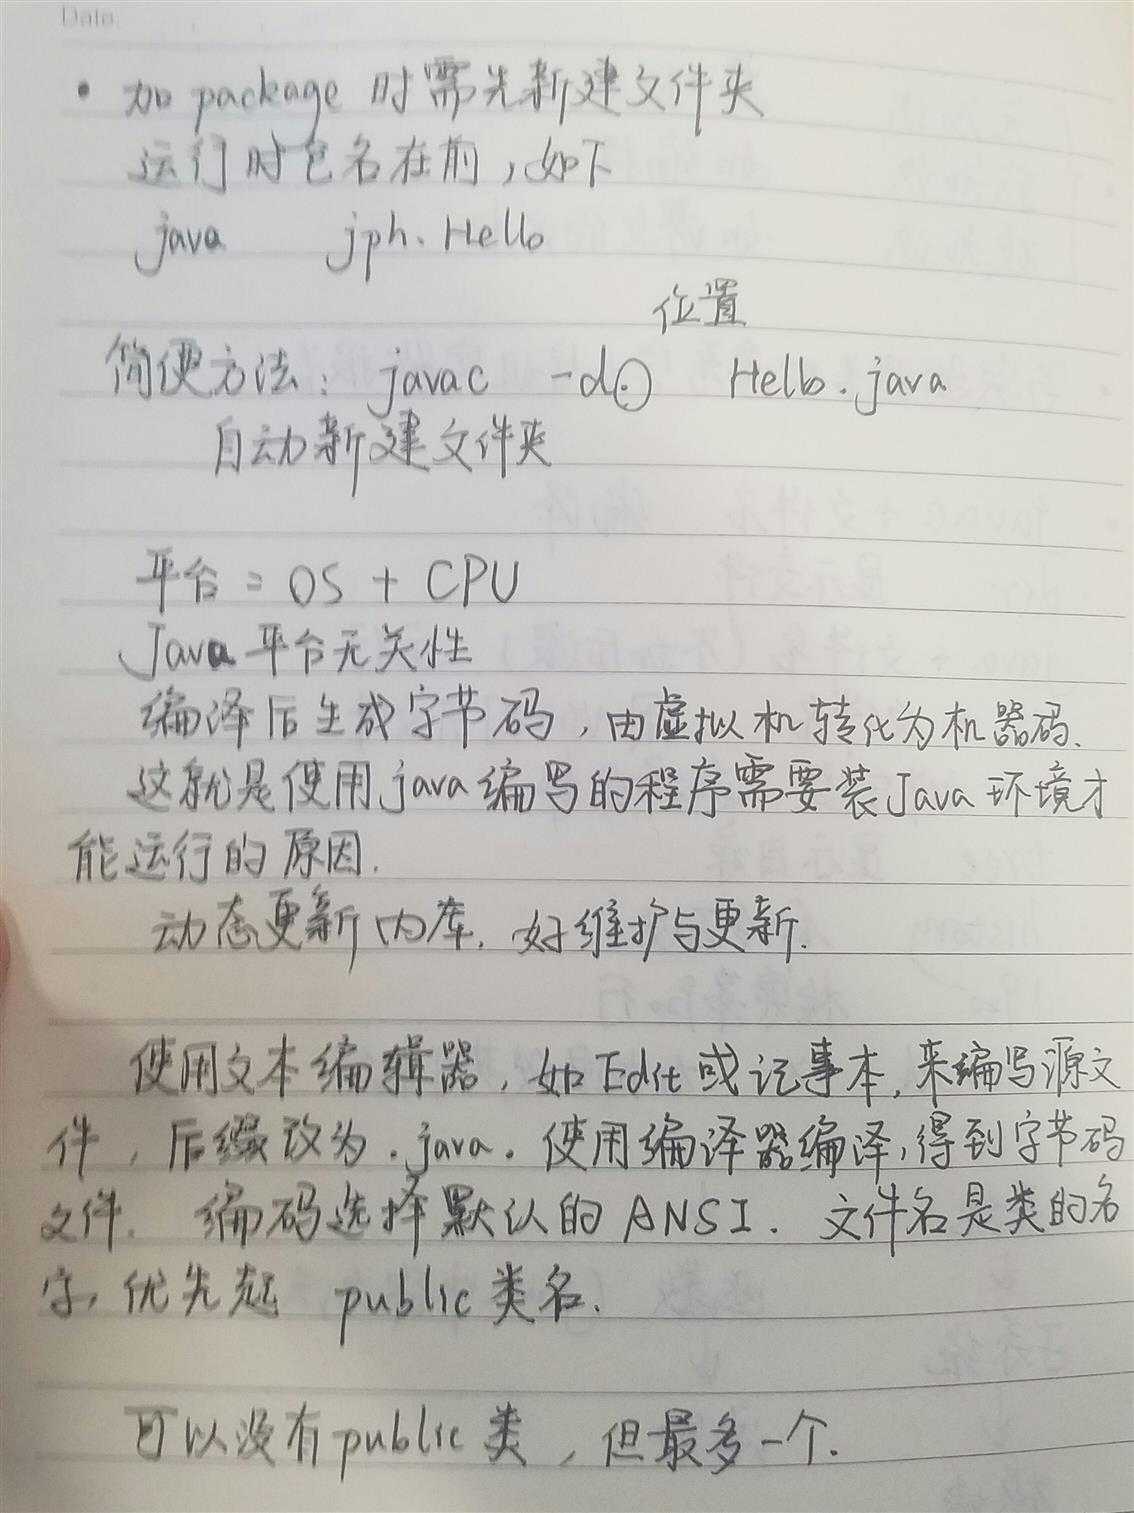 Date.
• 加 package 时需先新建文件夹
运行时包名在前，如下
java jph. Hello
位置
简便方法：javac -d . Hello.java
自动新建文件夹
平台 = OS + CPU
Java 平台无关性
编译后生成字节码，由虚拟机转化为机器码.
这就是使用java编写的程序需要装Java环境才
能运行的原因.
动态更新内库. 好维护与更新.
使用文本编辑器，如Edit或记事本，来编写源文
件，后缀改为.java. 使用编译器编译，得到字节码
文件. 编码选择默认的ANSI. 文件名是类的名
字，优先起 public类名.
可以没有public类，但最多一个.